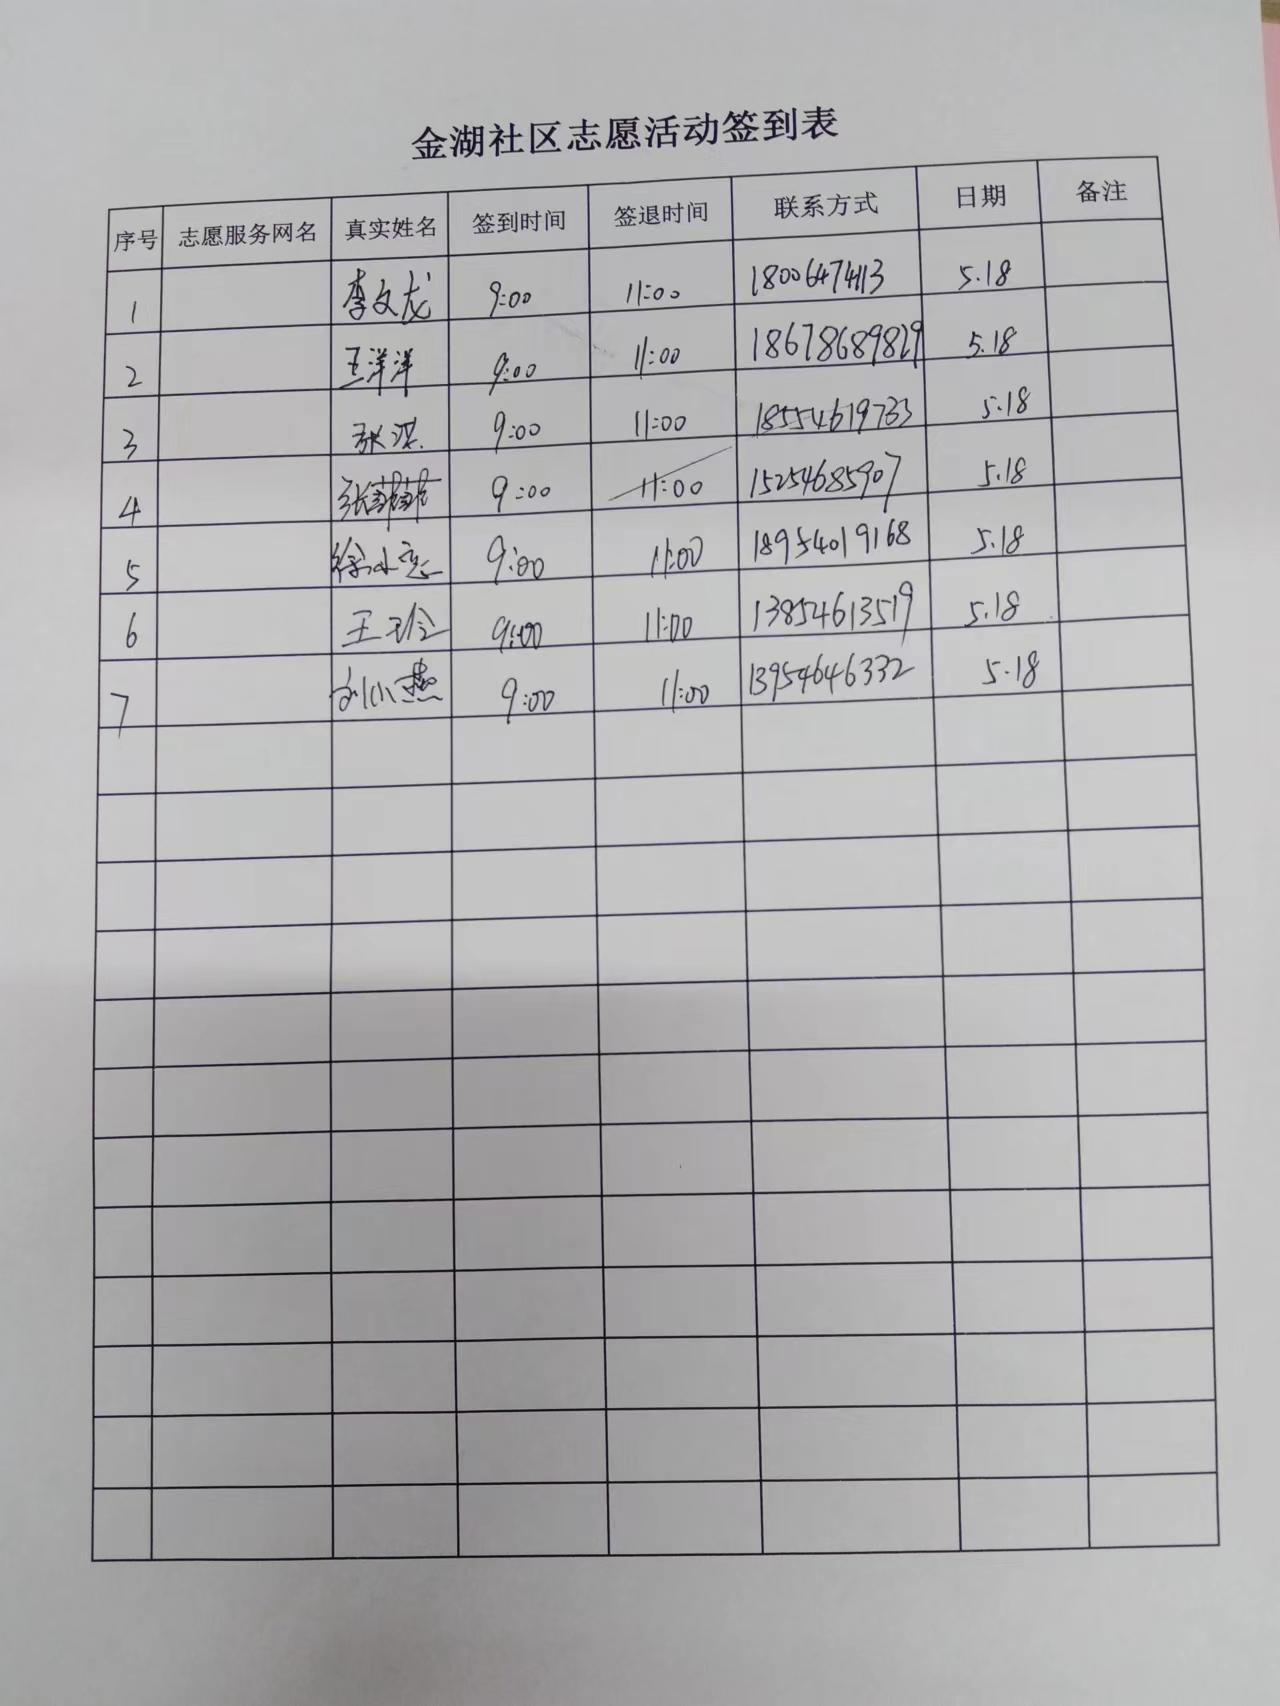 金湖社区志愿活动签到表
序号 志愿服务网名 真实姓名 签到时间 签退时间 联系方式 日期 备注
1 李文龙 9:00 11:00 18006474113 5.18
2 王洋洋 9:00 11:00 18678689829 5.18
3 9:00 11:00 18554619733 5.18
4 9:00 11:00 15254685907 5.18
5 9:00 11:00 18954019168 5.18
6 王玲 9:00 11:00 13854613519 5.18
7 刘小燕 9:00 11:00 13954646332 5.18